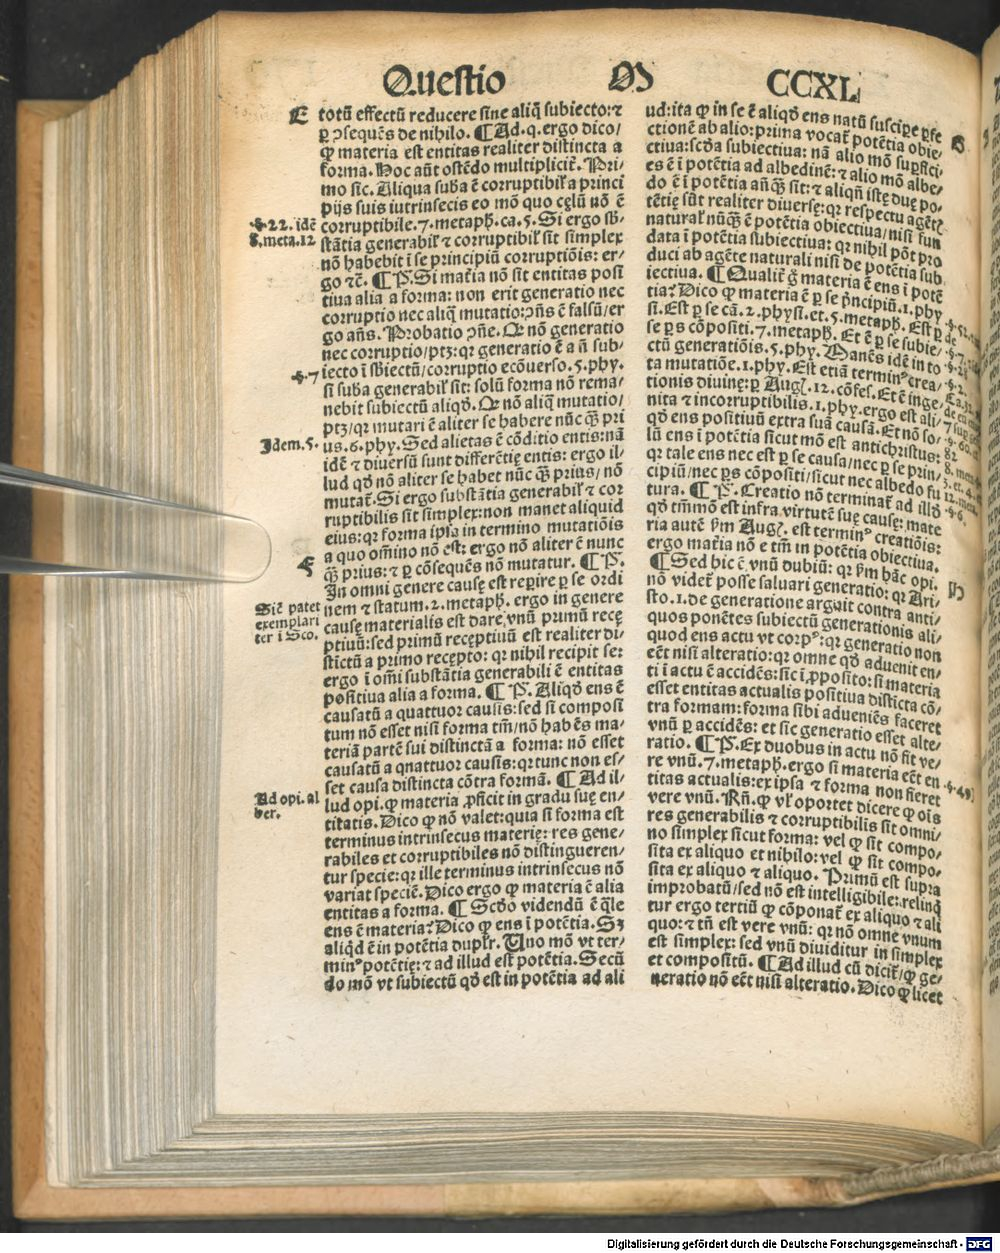 Questio M CCXL
E
totū effectū reducere sine aliq̄ subiecto:⁊
ꝑ ↄsequēs de nihilo. ¶ Ad .q. ergo dico/
ꝙ materia est entitas realiter distincta a
forma. Hoc aūt ostēdo multiplicit̄. Pri⸗
mo sic. Aliqua suba ē corruptibil̄a princi
pijs suis intrinsecis eo mō quo cęlū nō ē
corruptibile.7.metaph̄.ca.5. Si ergo sb̄⸗
stātia generabil̄ ⁊ corruptibil̄ sit simplex
nō habebit ī se principiū corruptiōis: er⸗
go ⁊c̄. ¶ P̄. Si mat̄ia nō sit entitas posi
tiua alia a forma: non erit generatio nec
corruptio nec aliq̄ mutatio:ↄn̄s ē falsū/er
go an̄s. Probatio ↄn̄e. Qꝛ nō generatio
nec corruptio/ptꝫ:qꝛ generatio ē a ñ sub⸗
iecto ī sb̄iectū/corruptio ecōuerso.5.phy.
si suba generabil̄ sit: solū forma nō rema⸗
nebit subiectū aliqḋ. Qꝛ nō aliq̄ mutatio/
ptꝫ/qꝛ mutari ē aliter se habere nūc q̄ꝫ pri
us.6.phy. Sed alietas ē cōditio entis:nā
idē ⁊ diuersū sunt differētię entis: ergo il⸗
lud qḋ nō aliter se habet nūc q̄ꝫ prius/ nō
mutat̄. Si ergo substātia generabil̄ ⁊ cor
ruptibilis sit simplex: non manet aliquid
eius: qꝛ forma ip̄a in termino mutatiōis
a quo om̄ino nō est: ergo nō aliter ē nunc
q̄ꝫ prius: ⁊ ꝑ cōsequēs nō mutatur. ¶ P̄.
In omni genere causę est reꝑire ꝑ se ordi
nem ⁊ statum.2.metaph̄. ergo in genere
causę materialis est dare vnū primū recę
ptiuū: sed primū recęptiuū est realiter di⸗
stīctū a primo recępto: qꝛ nihil recipit se:
ergo ī om̄i substātia generabili ē entitas
positiua alia a forma. ¶ P̄. Aliqḋ ens ē
causatū a quattuor causis: sed si composi
tum nō esset nisi forma tm̄/nō habēs ma⸗
teriā partē sui distinctā a forma: nō esset
causatū a qnattuor causis: qꝛ tunc non es⸗
set causa distincta cōtra formā. ¶ Ad il⸗
lud opi. ꝙ materia ꝓficit in gradu suę en⸗
titatis. Dico ꝙ nō valet: quia si forma est
terminus intrinsecus materię: res gene⸗
rabiles et corruptibiles nō distingueren⸗
tur specie: qꝛ ille terminus intrinsecus nō
variat speciē. Dico ergo ꝙ materia ē alia
entitas a forma. ¶ Scḋo videndū ē q̄le
ens ē materia? Dico ꝙ ens ī potētia. Sꝫ
aliqḋ ē in potētia duplr̄. Uno mō vt ter⸗
minꝰ potētię: ⁊ ad illud est potētia. Secū
do mō vt subiectū qḋ est in potētia ad ali
.§.22. idē
8.meta.12
.§.7
Idem.5.
F
Sic̄ patet
exemplari
ter ī Sco.
Ad opi. al
ber.
ud: ita ꝙ in se ē aliqḋ ens natū suscipe ꝑfe
ctionē ab alio: prima vocat̄ potētia obie⸗
ctiua: scḋa subiectiua: nā alio mō suꝑfici⸗
es ē ī potētia ad albedinē: ⁊ alio mō albe⸗
do ē ī potētia añq̄ꝫ sit: ⁊ aliqñ istę duę po⸗
tētię sūt realiter diuersę: qꝛ respectu agēt̄
natural̄ nūq̄ꝫ ē potētia obiectiua/nisi fun
data ī potētia subiectiua: qꝛ nihil pōt pro
duci ab agēte naturali nisi de potētia sub
iectiua. ¶ Qualit̄ ḡ materia ē ens ī potē
tia? Dico ꝙ materia ē ꝑ se pn̄cipiū.1.phy
si. Est ꝑ se cā.2.physi.et.5.metaph̄. Est ꝑ
se ꝑs cōpositi.7.metaph̄. Et ē ꝑ se subie⸗
ctū generatiōis.5.phy. Manēs idē in to
ta mutatiōe.1.phy. Est etiā terminꝰ crea⸗
tionis diuinę: ꝑ Augꝭ.12.cōfes. Et ē inge⸗
nita ⁊ incorruptibilis.1.phy. ergo est ali⸗
qḋ ens positiuū extra suā causā. Et nō so⸗
lū ens ī potētia sicut mō est antichristus:
qꝛ tale ens nec est ꝑ se causa/nec ꝑ se prin⸗
cipiū/nec ꝑs cōpositi/sicut nec albedo fu
tura. ¶ P̄. Creatio nō terminat̄ ad illḋ
qḋ tm̄mō est infra virtutē suę causę: mate
ria autē ẜm Augꝭ. est terminꝰ creatiōis:
ergo mat̄ia nō e tm̄ in potētia obiectiua.
¶ Sed hic ē vnū dubiū: qꝛ ẜm hāc opi.
nō videt̄ posse saluari generatio: qꝛ Ari⸗
sto.1.de generatione arguit contra anti⸗
quos ponētes subiectū generationis ali⸗
quod ens actu vt corpꝰ: qꝛ generatio non
eēt nisi alteratio: qꝛ omne qḋ aduenit en⸗
ti ī actu ē accidēs: sic ī ꝓposito: si materia
esset entitas actualis positiua distīcta cō⸗
tra formam: forma sibi adueniēs faceret
vnū ꝑ accidēs: et sic generatio esset alte⸗
ratio. ¶ P̄. Ex duobus in actu nō fit ve⸗
re vnū.7.metaph̄. ergo si materia eēt en
titas actualis: ex ipsa ⁊ forma non fieret
vere vnū. Rn̄. ꝙ vl̄ oportet dicere ꝙ ois
res generabilis ⁊ corruptibilis sit omni⸗
no simplex sicut forma: vel ꝙ sit compo⸗
sita ex aliquo et nihilo: vel ꝙ sit compo⸗
sita ex aliquo ⁊ aliquo. Primū est supra
improbatū/sed nō est intelligibile: relinq̄
tur ergo tertiū ꝙ cōponat̄ ex aliquo ⁊ ali
quo: ⁊ tn̄ est vere vnū: qꝛ nō omne vnum
est simplex: sed vnū diuiditur in simplex
et compositū. ¶ Ad illud cū dicit̄/ꝙ ge⸗
neratio nō eēt nisi alteratio. Dico ꝙ licet
G
H
.§.49